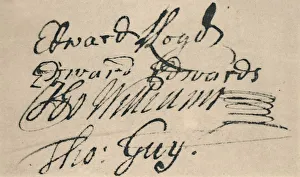 Edward Lloyd
Edward Edwards
Tho Williams
Tho: Guy.